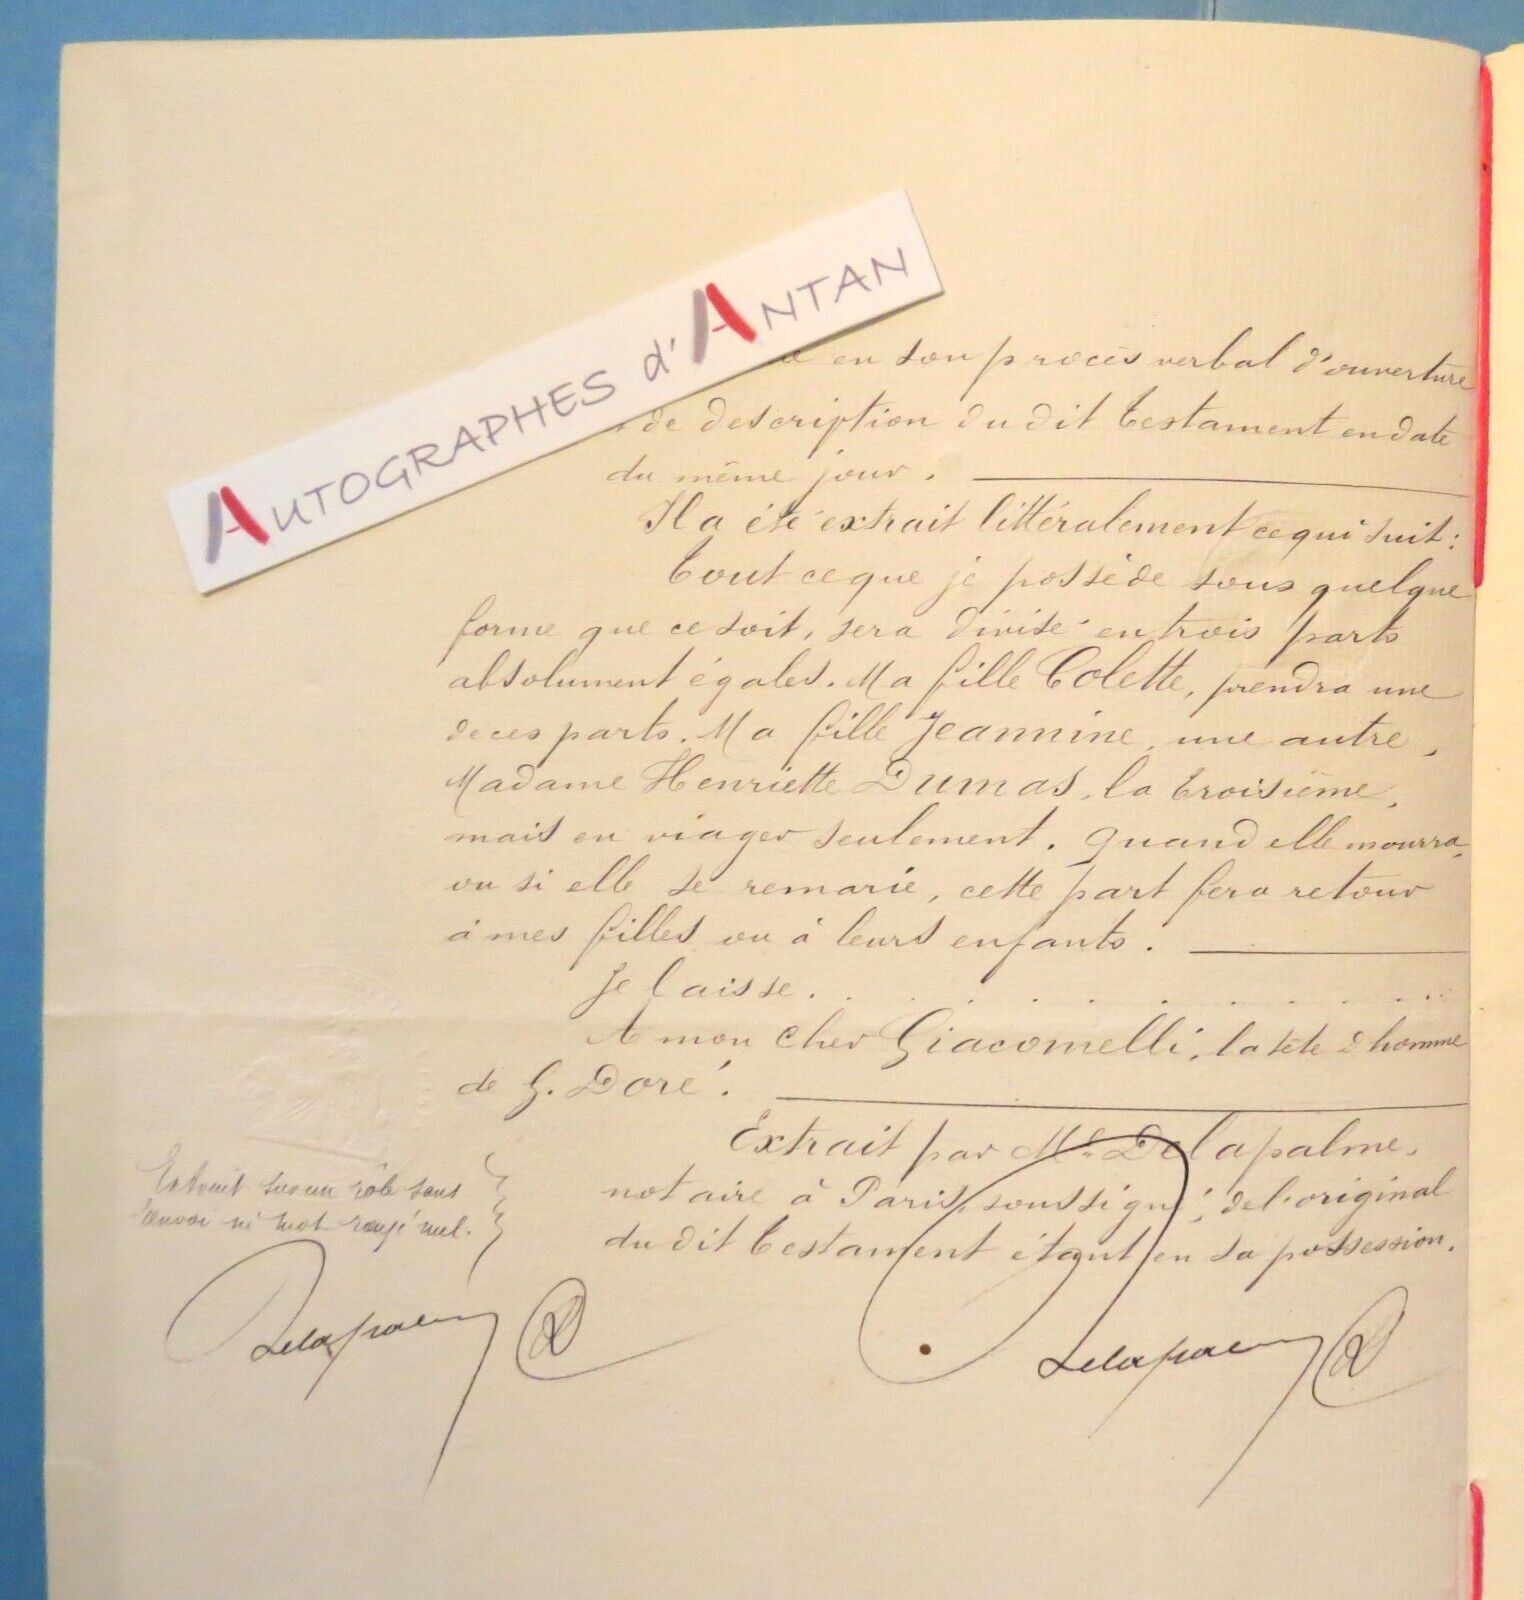 AUTOGRAPHES d'ANTAN
en son procès verbal d'ouverture
de description du dit Testament en date
du même jour.
Il a été extrait littéralement ce qui suit:
Tout ce que je possède sous quelque
forme que ce soit, sera divisé en trois parts
absolument égales. Ma fille Colette, prendra une
de ces parts. Ma fille Jeannine, une autre,
Madame Henriette Dumas, la troisième,
mais en viager seulement. Quand elle mourra,
ou si elle se remarie, cette part fera retour
à mes filles ou à leurs enfants.
Je laisse. . . . . . . . . . . . .
A mon cher Giacomelli, la tête d'homme
de G. Doré.
Extrait par Me Delapalme,
notaire à Paris, soussigné, de l'original
du dit Testament étant en sa possession.
Extrait sur un rôle sans
renvoi ni mot rayé nul.
Delapalme
Delapalme